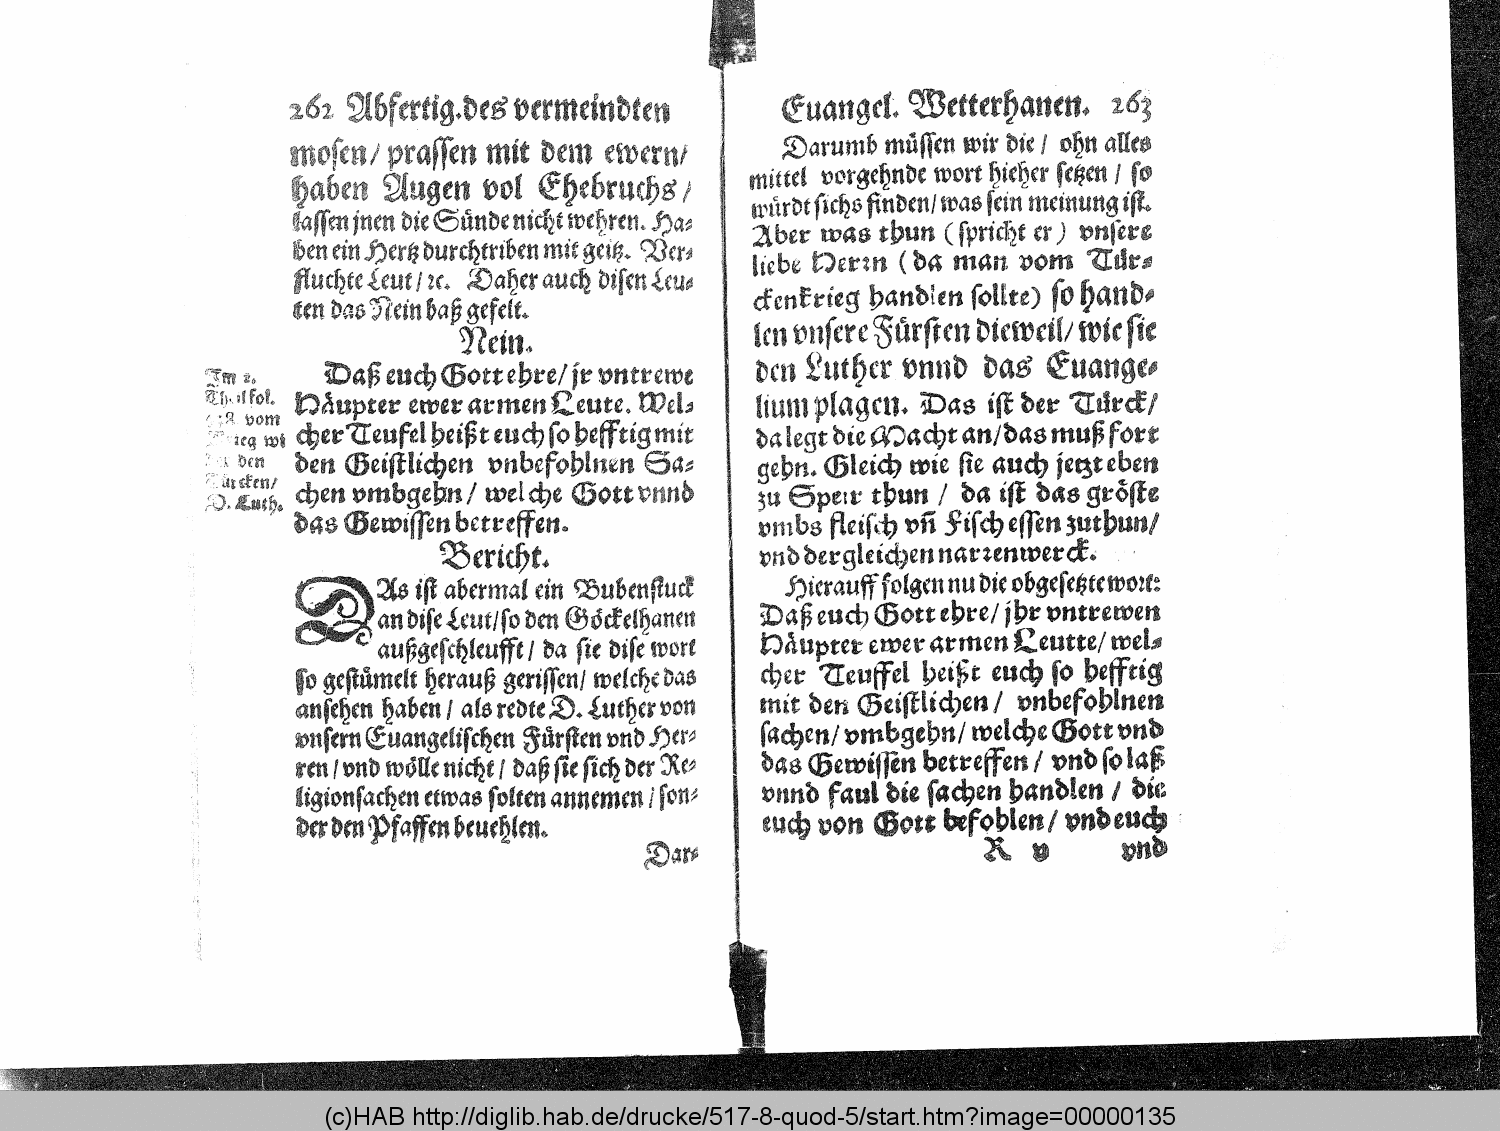 262 Abfertig. des vermeindten
mosen/ prassen mit dem ewern/
haben Augen vol Ehebruchs/
lassen jnen die Sünde nicht wehren. Ha-
ben ein Hertz durchtriben mit geitz. Ver-
fluchte Leut/ ꝛc. Daher auch disen Leu-
ten das Nein baß gefelt.
Nein.
Im 2.
Theil fol.
vom
Krieg wi
den
Türcken/
D. Luth.
Daß euch Gott ehre/ jr vntrewe
Häupter ewer armen Leute. Wel-
cher Teufel heißt euch so hefftig mit
den Geistlichen vnbefohlnen Sa-
chen vmbgehn/ welche Gott vnnd
das Gewissen betreffen.
Bericht.
DAs ist abermal ein Bubenstuck
an dise Leut/ so den Göckelhanen
außgeschleufft/ da sie dise wort
so gestümelt herauß gerissen/ welche das
ansehen haben/ als redte D. Luther von
vnsern Euangelischen Fürsten vnd Her-
ren/ vnd wölle nicht/ daß sie sich der Re-
ligionsachen etwas solten annemen/ son-
der den Pfaffen beuehlen.
Dar-
Euangel. Wetterhanen. 263
Darumb müssen wir die/ ohn alles
mittel vorgehnde wort hieher setzen/ so
würdt sichs finden/ was sein meinung ist.
Aber was thun (spricht er) vnsere
liebe Herrn (da man vom Tür-
ckenkrieg handlen sollte) so hand-
len vnsere Fürsten dieweil/ wie sie
den Luther vnnd das Euange-
lium plagen. Das ist der Türck/
da legt die Macht an/ das muß fort
gehn. Gleich wie sie auch jetzt eben
zu Speir thun/ da ist das gröste
vmbs fleisch vñ Fisch essen zuthun/
vnd dergleichen narrenwerck.
Hierauff folgen nu die obgesetzte wort:
Daß euch Gott ehre/ jhr vntrewen
Häupter ewer armen Leutte/ wel-
cher Teuffel heißt euch so hefftig
mit den Geistlichen/ vnbefohlnen
sachen/ vmbgehn/ welche Gott vnd
das Gewissen betreffen/ vnd so laß
vnnd faul die sachen handlen/ die
euch von Gott befohlen/ vnd euch
R v vnd
(c)HAB http://diglib.hab.de/drucke/517-8-quod-5/start.htm?image=00000135